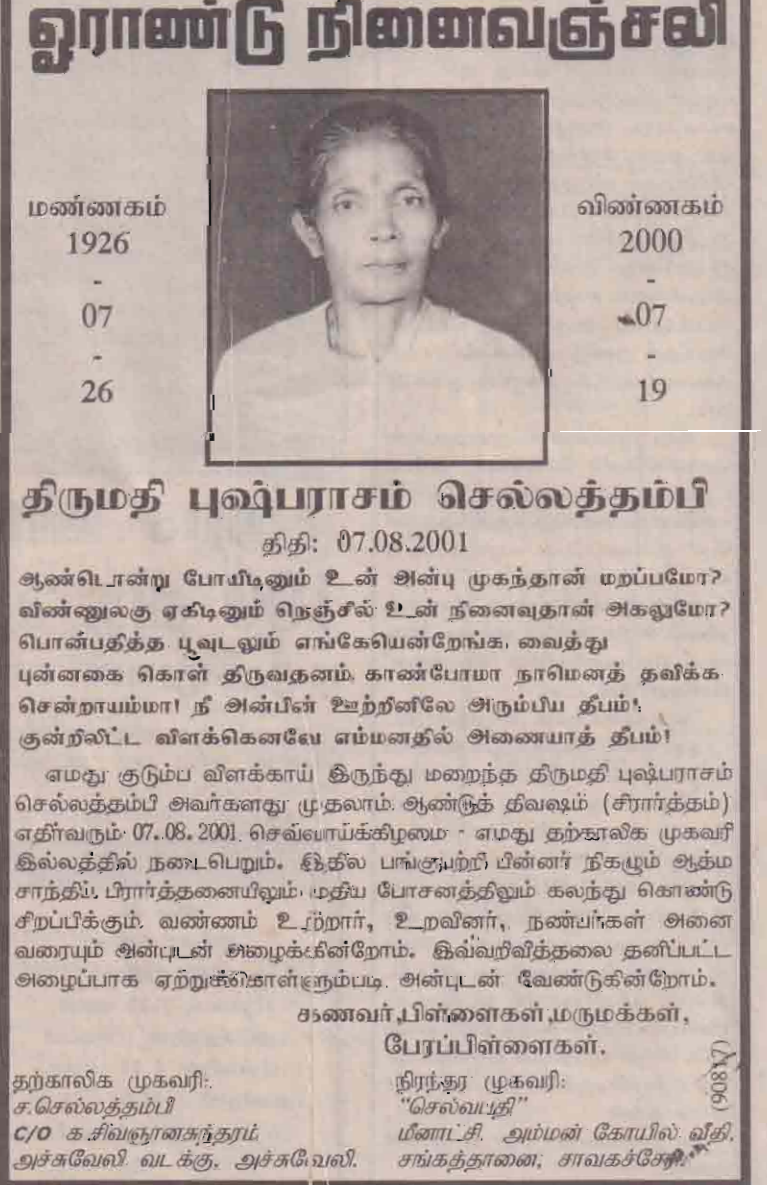 ஓராண்டு நினைவஞ்சலி
மண்ணகம்
1926
-
07
-
26
விண்ணகம்
2000
-
07
-
19
திருமதி புஷ்பராசம் செல்லத்தம்பி
திதி: 07.08.2001
ஆண்டொன்று போயிடினும் உன் அன்பு முகந்தான் மறப்பமோ?
விண்ணுலகு ஏகிடினும் நெஞ்சில் உன் நினைவுதான் அகலுமோ?
பொன்பதித்த பூவுடலும் எங்கேயென்றேங்க வைத்து
புன்னகை கொள் திருவதனம் காண்போமா நாமெனத் தவிக்க
சென்றாயம்மா! நீ அன்பின் ஊற்றினிலே அரும்பிய தீபம்!
குன்றிலிட்ட விளக்கெனவே எம்மனதில் அணையாத் தீபம்!
எமது குடும்ப விளக்காய் இருந்து மறைந்த திருமதி புஷ்பராசம்
செல்லத்தம்பி அவர்களது முதலாம் ஆண்டுத் திவஷம் (சிரார்த்தம்)
எதிர்வரும் 07.08.2001 செவ்வாய்க்கிழமை - எமது தற்காலிக முகவரி
இல்லத்தில் நடைபெறும். இதில் பங்குபற்றி பின்னர் நிகழும் ஆத்ம
சாந்திப் பிரார்த்தனையிலும் மதிய போசனத்திலும் கலந்து கொண்டு
சிறப்பிக்கும் வண்ணம் உற்றார், உறவினர், நண்பர்கள் அனை
வரையும் அன்புடன் அழைக்கின்றோம். இவ்வறிவித்தலை தனிப்பட்ட
அழைப்பாக ஏற்றுக்கொள்ளும்படி அன்புடன் வேண்டுகின்றோம்.
கணவர்,பிள்ளைகள்,மருமக்கள்,
பேரப்பிள்ளைகள்.
தற்காலிக முகவரி:
ச.செல்லத்தம்பி
C/O க.சிவஞானசுந்தரம்
அச்சுவேலி வடக்கு, அச்சுவேலி.
நிரந்தர முகவரி:
"செல்வபதி"
மீனாட்சி அம்மன் கோயில் வீதி,
சங்கத்தானை, சாவகச்சேரி.